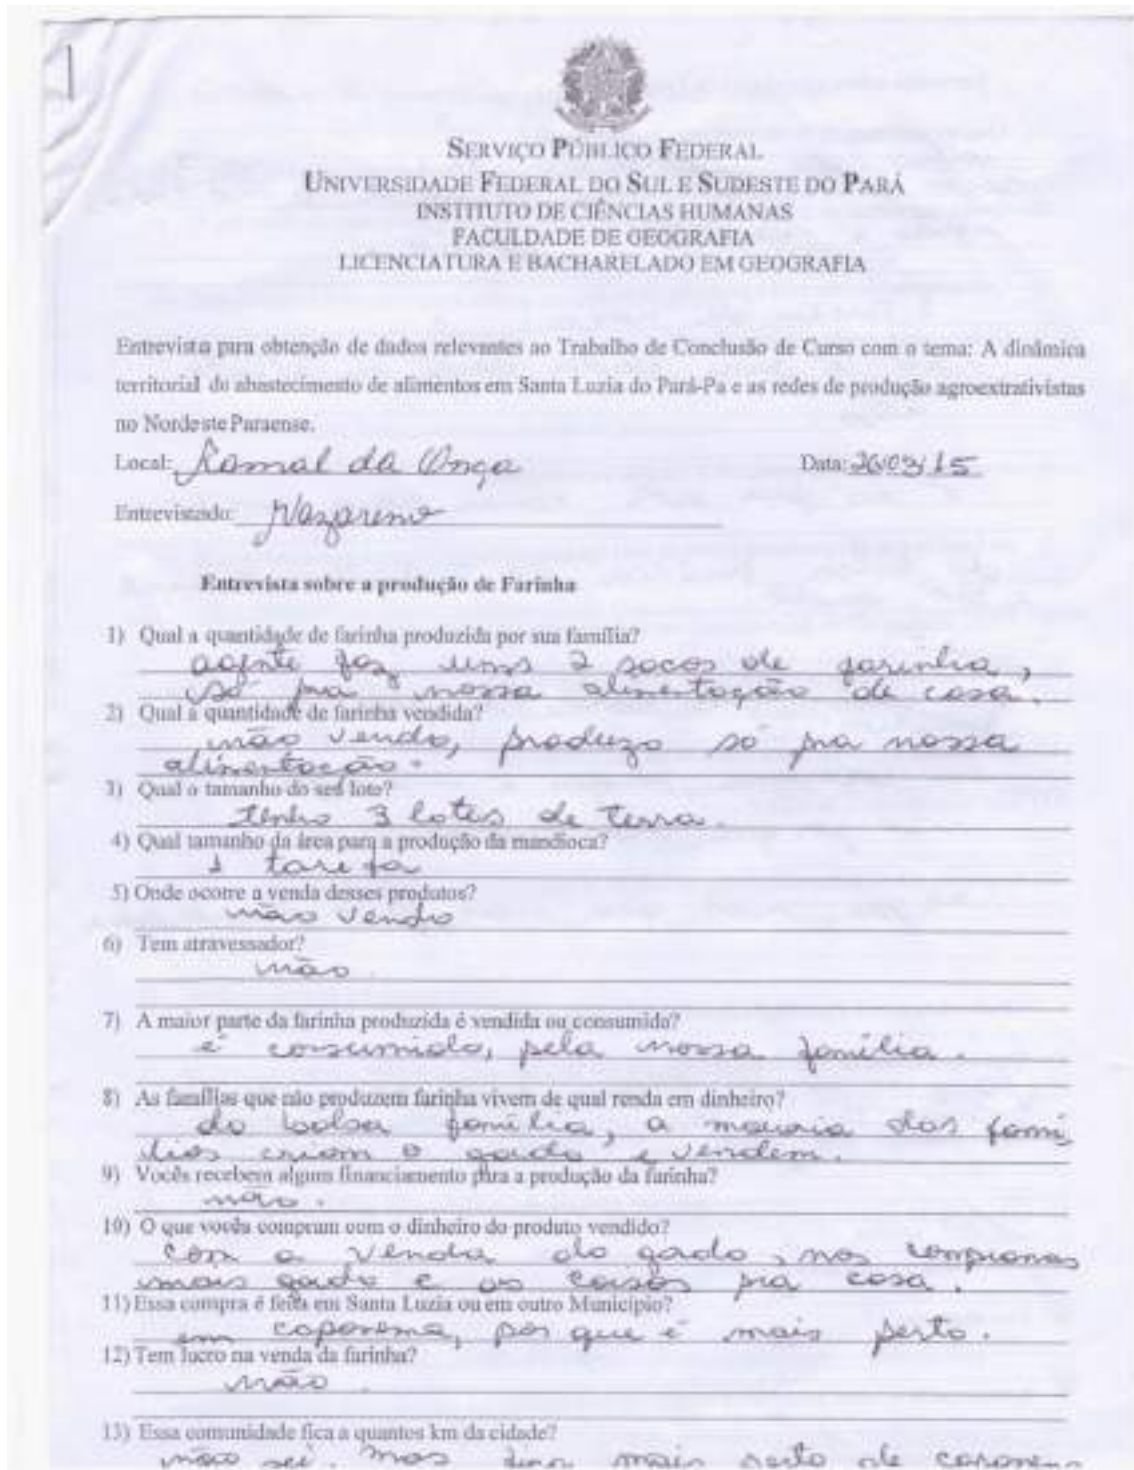 1
SERVIÇO PÚBLICO FEDERAL
UNIVERSIDADE FEDERAL DO SUL E SUDESTE DO PARÁ
INSTITUTO DE CIÊNCIAS HUMANAS
FACULDADE DE GEOGRAFIA
LICENCIATURA E BACHARELADO EM GEOGRAFIA
Entrevista para obtenção de dados relevantes ao Trabalho de Conclusão de Curso com o tema: A dinâmica
territorial do abastecimento de alimentos em Santa Luzia do Pará-Pa e as redes de produção agroextrativistas
no Nordeste Paraense.
Local: Ramal da Onça Data: 26/03/15
Entrevistado: Nazareno
Entrevista sobre a produção de Farinha
1) Qual a quantidade de farinha produzida por sua família?
agente faz uns 2 sacos de farinha,
só pra nossa alimentação de casa.
2) Qual a quantidade de farinha vendida?
não vendo, produzo só pra nossa
alimentação.
3) Qual o tamanho do seu lote?
tenho 3 lotes de terra.
4) Qual tamanho da área para a produção da mandioca?
1 tarefa
5) Onde ocorre a venda desses produtos?
não vendo
6) Tem atravessador?
não.
7) A maior parte da farinha produzida é vendida ou consumida?
é consumida, pela nossa família.
8) As famílias que não produzem farinha vivem de qual renda em dinheiro?
do bolsa família, a maioria das famí
lias criam o gado e vendem.
9) Vocês recebem algum financiamento para a produção da farinha?
não.
10) O que vocês compram com o dinheiro do produto vendido?
com a venda do gado, nos compramos
mais gado e as coisas pra casa.
11) Essa compra é feita em Santa Luzia ou em outro Município?
em capanema, por que é mais perto.
12) Tem lucro na venda da farinha?
não.
13) Essa comunidade fica a quantos km da cidade?
não sei, mas fica mais perto de capanema